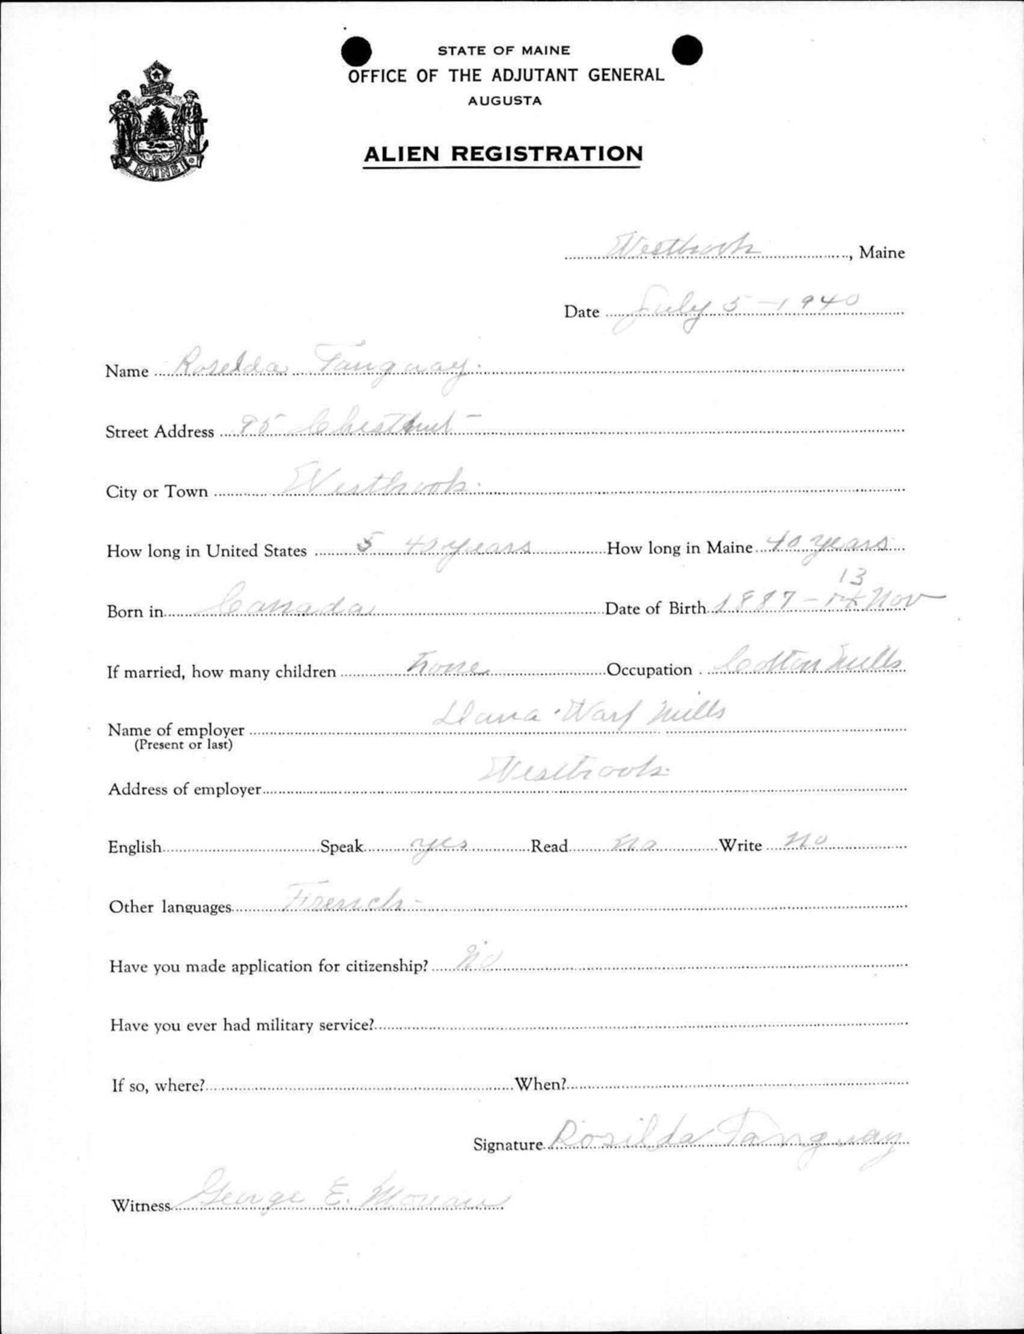 STATE OF MAINE
OFFICE OF THE ADJUTANT GENERAL
AUGUSTA
ALIEN REGISTRATION
MAINE
Westbrook, Maine
Date July 5 - 1940
Name Roselda Tanguay.
Street Address 95 Chestnut -
City or Town Westbrook.
How long in United States 40 years How long in Maine 40 years
13
Born in Canada Date of Birth 1887 - Nov
If married, how many children none Occupation Cotton Mills
Name of employer Dana Warf Mills
(Present or last)
Address of employer Westbrook.
English Speak yes Read no Write no
Other languages French -
Have you made application for citizenship? No
Have you ever had military service?
If so, where? When?
Signature Rosilda Tanguay
Witness George E.